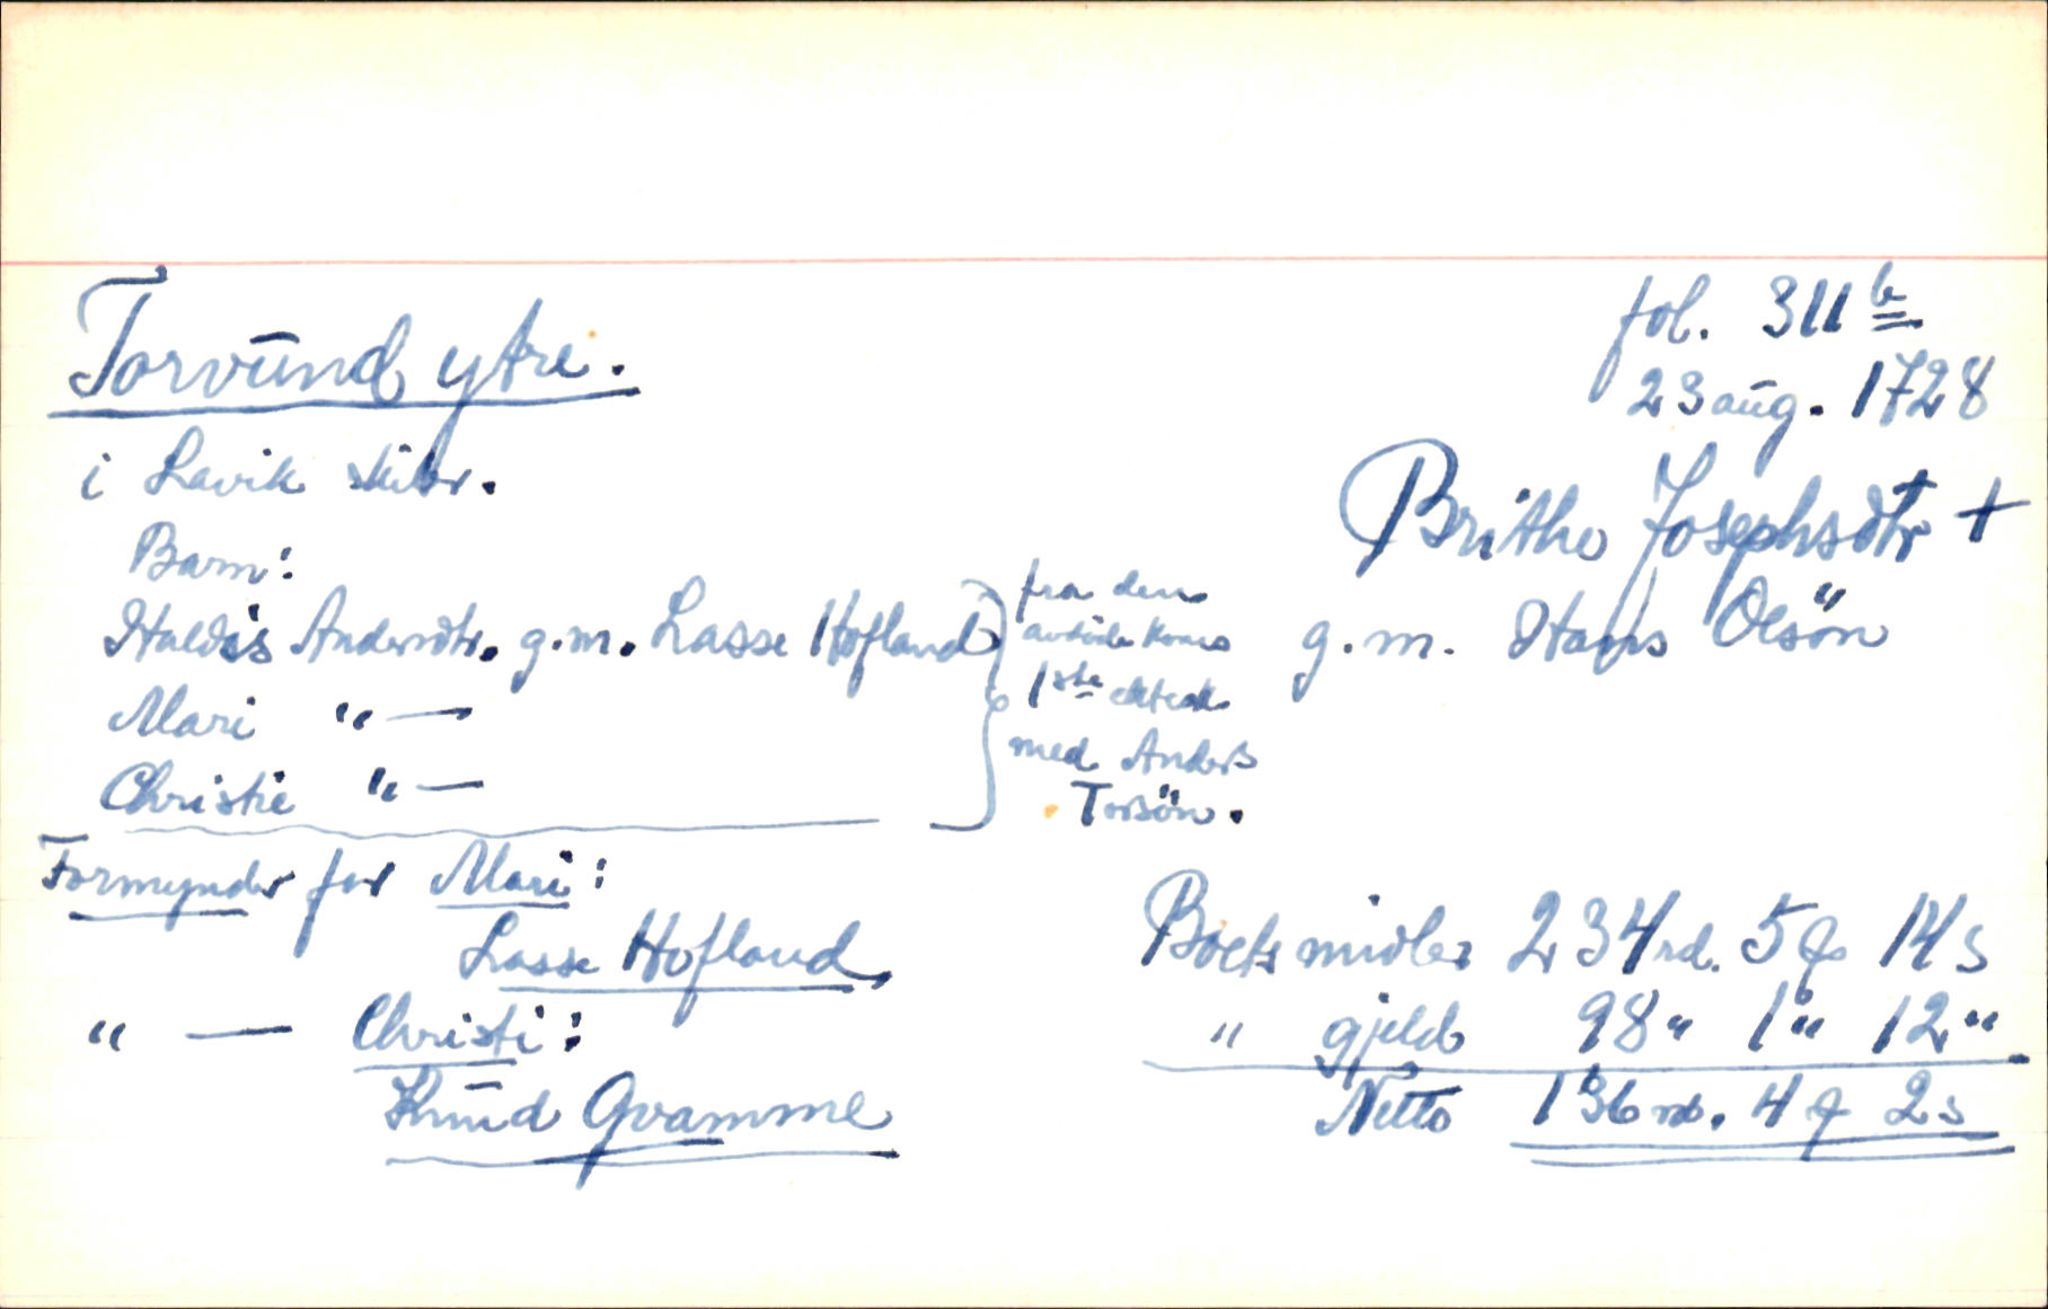 Torvund ytre.
i Lavik skibr.
fol. 311 b
23 aug. 1728
Brithe Josephsdtr +
g.m. Hans Olsön
Barn:
Haldis Andersdtr. g.m. Lasse Hofland
Mari " —
Christie " —
fra den
avdöde kones
1ste ektesk.
med Anders
Torsön.
Formynder for Mari:
Lasse Hofland
" — Christi:
Knud Qvamme
Boets midler 234 rd. 5 ₰ 14 s
" gjeld 98 " 1 " 12 "
Netto 136 rd. 4 ₰ 2 s